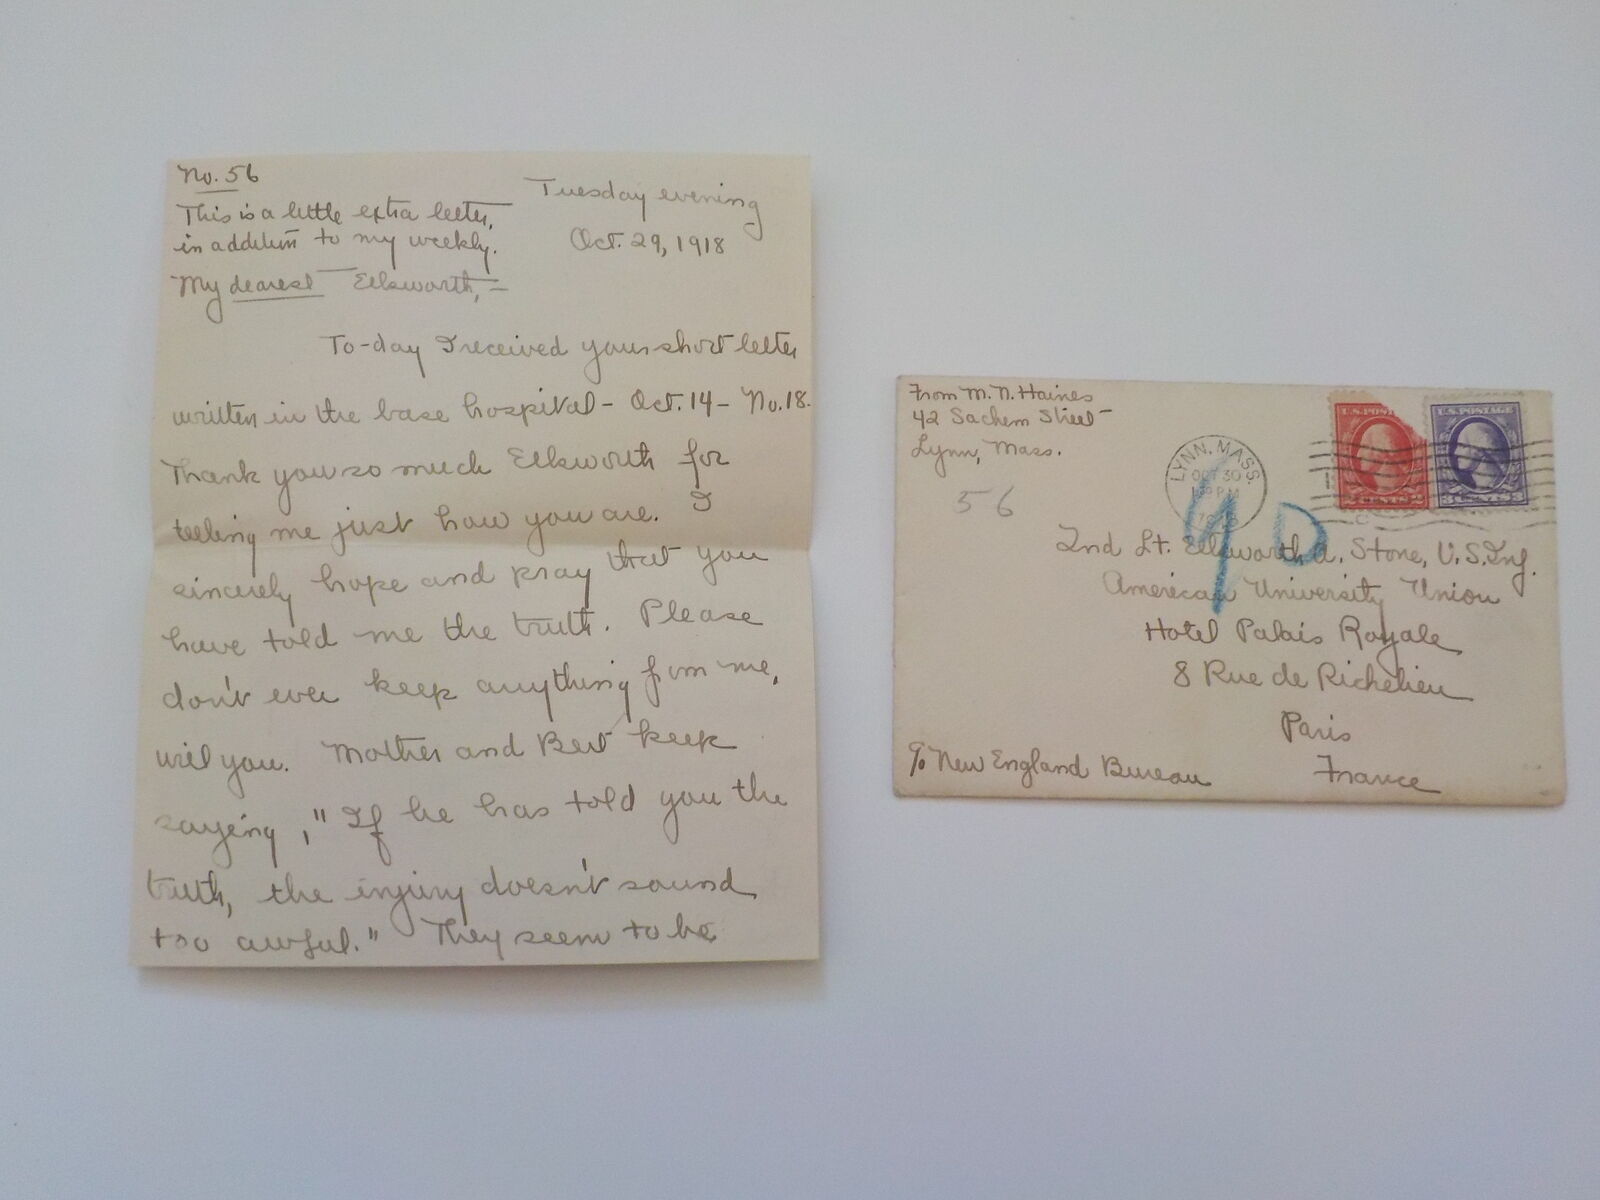 No. 56
This is a little extra letter,
in addition to my weekly.
Tuesday evening
Oct. 29, 1918
My dearest Ellsworth,-
To-day I received your short letter
written in the base hospital - Oct. 14 - No. 18.
Thank you so much Ellsworth for
telling me just how you are. I
sincerely hope and pray that you
have told me the truth. Please
don't ever keep anything from me,
will you. Mother and Bert keep
saying, "If he has told you the
truth, the injury doesn't sound
too awful." They seem to be
From M. N. Haines
42 Sachem Street
Lynn, Mass.
56
LYNN, MASS.
OCT 30
PM
U.S. POST
U.S. POSTAGE
3 CENTS 3
2nd Lt. Ellsworth A. Stone, U.S. Inf.
American University Union
Hotel Palais Royale
8 Rue de Richelieu
Paris
France
c/o New England Bureau